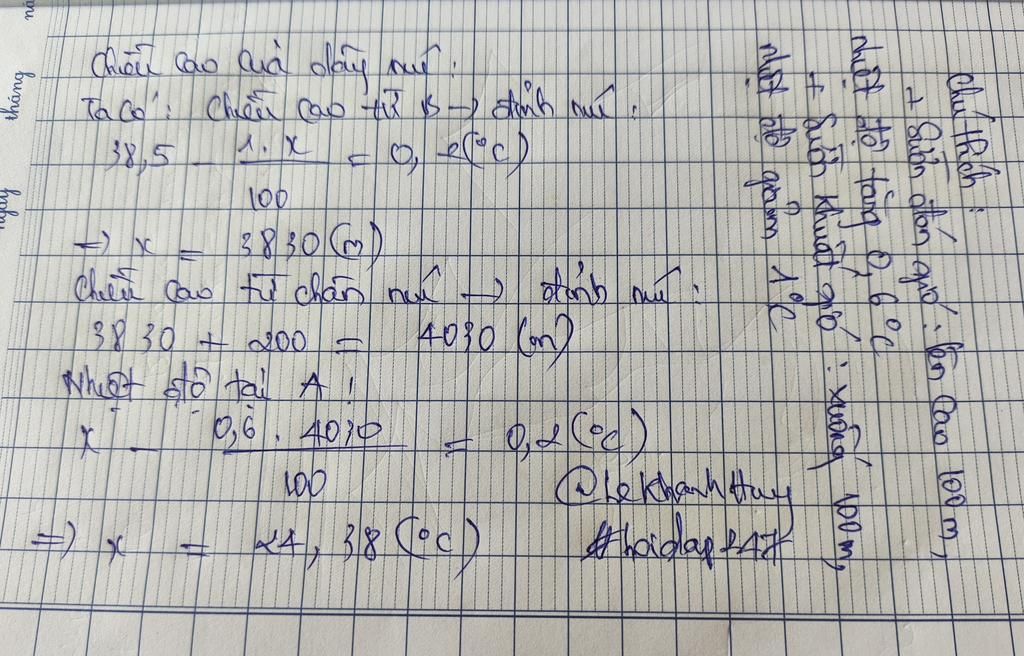 Chiều cao của dãy núi:
Ta có: Chiều cao từ B → đỉnh núi:
38,5 - 1.x / 100 = 0,2(°C)
=> x = 3830(m)
Chiều cao từ chân núi → đỉnh núi:
3830 + 200 = 4030(m)
Nhiệt độ tại A:
x - 0,6.4030 / 100 = 0,2(°C)
=> x = 24,38(°C)
@LeKhanhHuy
#hoidap247
Chú thích:
+ Sườn đón gió: lên cao 100m,
nhiệt độ tăng 0,6°C
+ Sườn khuất gió: xuống 100m,
nhiệt độ giảm 1°C
tháng
ngày